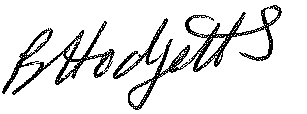 B Hodgetts